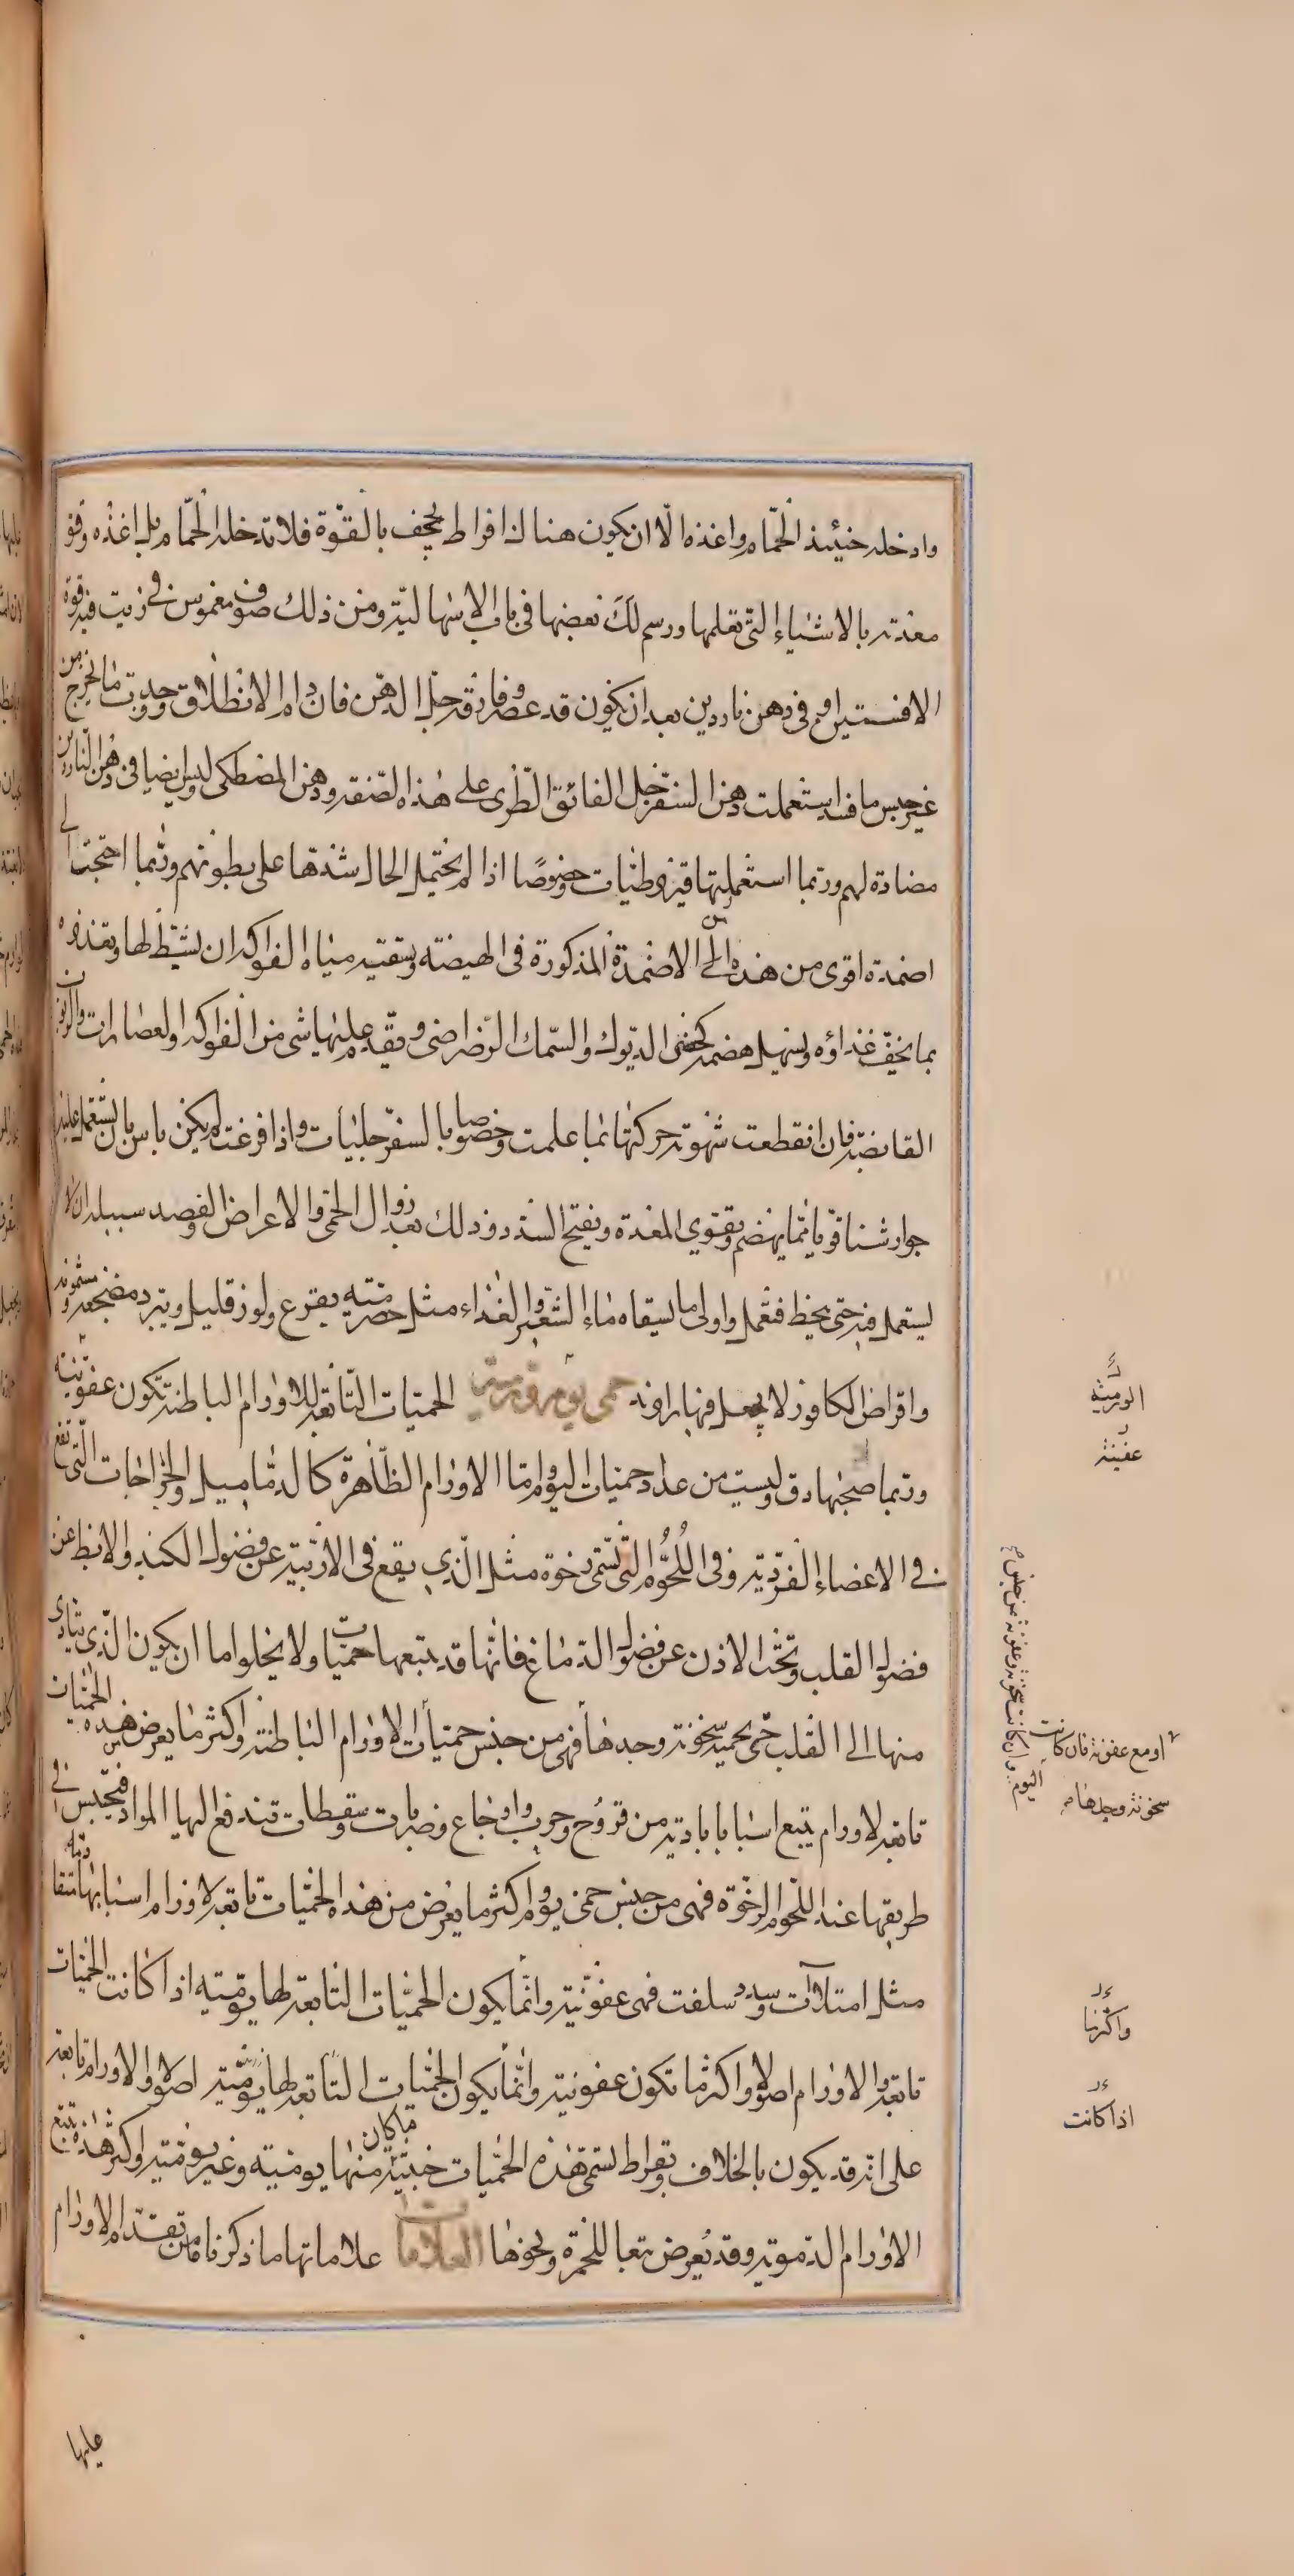 وادخله حينئذ الحمام واغذه الا ان يكون هناك افراط يجحف بالقوة فلا تدخله الحمام بل اغذه وقو
معدته بالاشياء التي تعلمها ورسم لك بعضها في باب الاسهالية ومن ذلك صوف مغموس في زيت فيه قوة
الافسنتين او في دهن ناردين بعد ان يكون قد عصر وفارقه جل الدهن فان دام الانطلاق وجدت ما يخرج من
غير جنس ما فسد استعملت دهن السفرجل الفائق الطرى على هذه الصفة ودهن المصطكى وليس ايضا في دهن الناردين
مضادة لهم وربما استعملتها قيروطيات وخصوصا اذا لم يحتمل الحال شدها على بطونهم وربما احتجت الى
اضمدة اقوى من هذه الى الاضمدة المذكورة في الهيضة وتسقيه مياه الفواكه ان نشط لها وتغذوه
بما يخف غذاؤه ويسهل هضمه كخصى الديوك والسمك الرضراضى ويقدم عليها شى من الفواكه والعصارات والربوب
القابضة فان انقطعت شهوته حركتها بما علمت وخصوصا بالسفرجليات واذا فرغت لم يكن باس بان يستعمل عليه
جوارشنا قويا مما يهضم ويقوي المعدة ويفتح السدد وذلك بعد زوال الحمى والاعراض والفصد سبيله ان لا
يستعمل فيه حتى يخيط فتعمل واولى ما يسقاه ماء الشعير والغذاء مثل حصرمية بقرع ولوز قليل ويبرد مضجعه ومشمومه
واقراض الكافور لا يجعل فيها راوند حمى يوم ورمية الحميات التابعة للاورام الباطنة تكون عفونية
وربما صحبها دق وليست من عداد حميات اليوم واما الاورام الظاهرة كالدماميل والخراجات التي تقع
في الاعضاء الغددية وفي اللحوم التي تسمى رخوة مثل الذي يقع في الاربية عن فضول الكبد والابط عن
فضول القلب وتحت الاذن عن فضول الدماغ فانها قد يتبعها حميات ولا يخلوا اما ان يكون الذي يتادى
منها الى القلب حتى يحميه سخونة وحدها فهى من جنس حميات الاورام الباطنة واكثر ما يعرض من هذه الحميات
تابعه لاورام يتبع اسبابا بادية من قروح وجرب واوجاع وضربات وسقطات تندفع اليها المواد فتحتبس في
طريقها عند اللحوم الرخوة فهى من جنس حمى يوم واكثر ما يعرض من هذه الحميات تابعه لاورام اسبابها متقادمة
مثل امتلاآت وسدد سلفت فهى عفونية وانما يكون الحميات التابعة لها يومية اذا كانت الحميات
تابعه والاورام اصولا واكثر ما تكون عفونية وانما يكون الحميات التابعه لها يومية اصولا والاورام تابعة
على انه قد يكون بالخلاف وبقراط يسمى هذه الحميات خبيثة ما كان منها يومية وغير يومية واكثر هذه تتبع
الاورام الدموية وقد يعرض تبعا للحمرة ونحوها العلامات علاماتها ما ذكرنا من تقدم الاورام
عليها
الورمية
عفينة
او مع عفونة فان كانت
سخونة وحدها
اليوم وان كانت سخونة وعفونة من جنس
واكثرها
اذا كانت